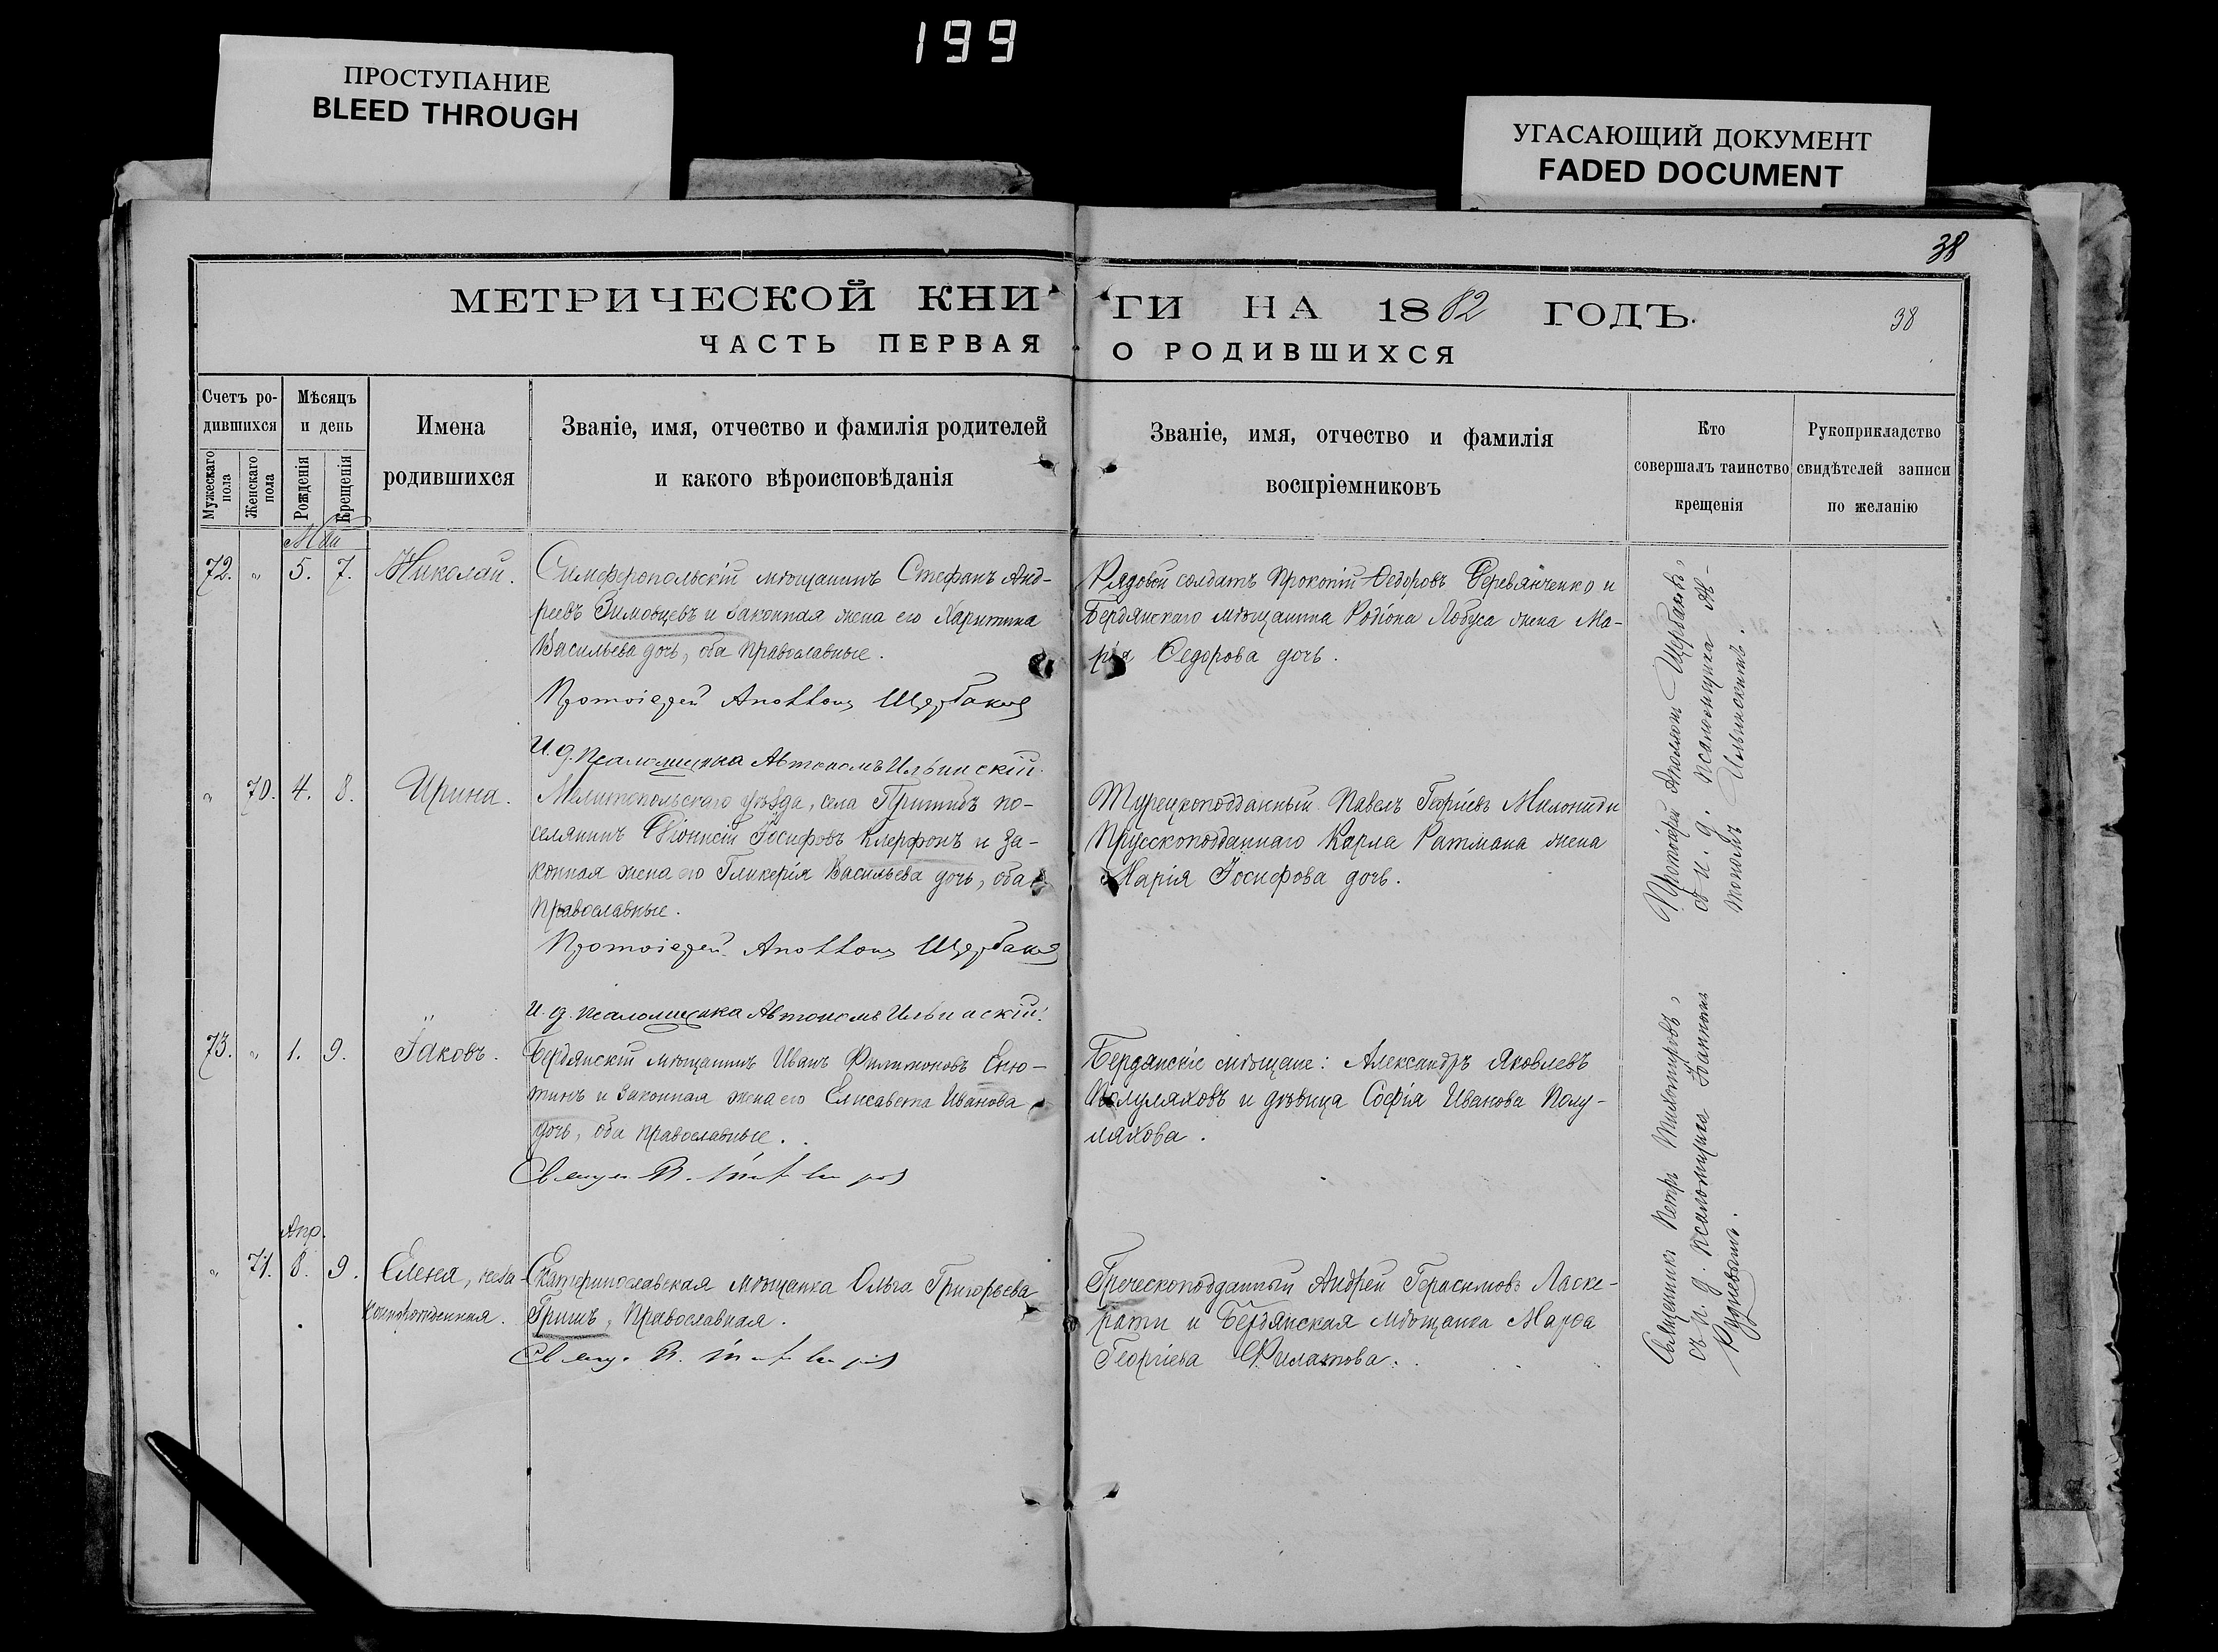 199
ПРОСТУПАНИЕ
BLEED THROUGH
УГАСАЮЩИЙ ДОКУМЕНТ
FADED DOCUMENT
38
МЕТРИЧЕСКОЙ КНИ
ГИ НА 1882 ГОДЪ.
38
ЧАСТЬ ПЕРВАЯ
О РОДИВШИХСЯ
Счетъ ро-
дившихся
Мужескаго пола
Женскаго пола
Мѣсяцъ
и день
Рожденія
Крещенія
Имена
родившихся
Званіе, имя, отчество и фамилія родителей
и какого вѣроисповѣданія
Званіе, имя, отчество и фамилія
воспріемниковъ
Кто
совершалъ таинство
крещенія
Рукоприкладство
свидѣтелей записи
по желанію
Май
72. " 5. 7. Николай.
Симферопольскій мѣщанинъ Стефанъ Анд-
реевъ Зимовцевъ и законная жена его Харитина
Васильева дочь, оба православные.
Протоіерей Аполлонъ Щербаковъ
И. д. псаломщика Автономъ Ильинскій.
Рядовой солдатъ Прокопій Ѳедоровъ Деревянченко и
Бердянскаго мѣщанина Родіона Лобуса жена Ма-
рія Ѳедорова дочь.
" 70. 4. 8. Ирина.
Мелитопольскаго уѣзда, села Пришибъ по-
селянинъ Діонисій Іосифовъ Клерфонъ и за-
конная жена его Гликерія Васильева дочь, оба
православные.
Протоіерей Аполлонъ Щербаковъ
И. д. псаломщика Автономъ Ильинскій.
Турецкоподданный Павелъ Георгіевъ Милониди
Прусскоподданнаго Карла Ратмана жена
Марія Іосифова дочь.
Протоіерей Аполлонъ Щербаковъ,
съ и. д. псаломщика Ав-
тономъ Ильинскимъ.
73. " 1. 9. Іаковъ.
Бердянскій мѣщанинъ Иванъ Филимоновъ Еню-
тинъ и законная жена его Елисавета Иванова
дочь, оба православные.
Священ. П.
Бердянскіе мѣщане: Александръ Яковлевъ
Полуляховъ и дѣвица Софія Иванова Полу-
ляхова.
Апр.
" 71. 8. 9. Елена, неза-
коннорожденная.
Екатеринославская мѣщанка Ольга Григорьева
Гришъ, православная.
Свящ. П.
Греческоподданный Андрей Герасимовъ Ласке-
рати и Бердянская мѣщанка Марѳа
Георгіева Филатова.
Священникъ Петръ Тихомировъ,
съ и. д. псаломщика Іоанномъ
Рудневымъ.